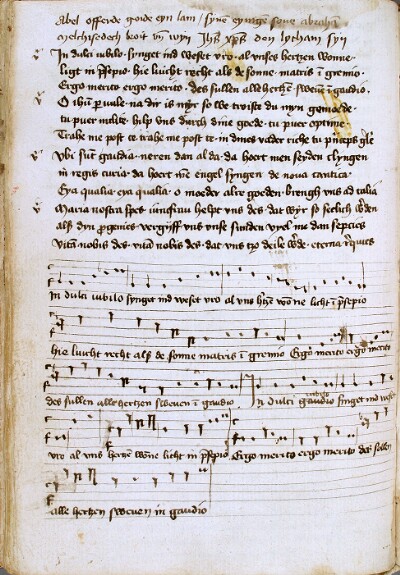 Abel offerde goide eyn lam / synen eynigen sone abraham
Melchisedech broit vn wyn Jhs xps den lycham syn
In dulci iubilo synget ind weset vro al vnses hertzen wonne
ligt in psepio hie luicht recht als de sonne matris i gremio
Ergo merito ergo merito des sullen alle hertzen sweuen i gaudio
O ihu puule na dir is myr so we troiste du myn gemoede
tu puer inclite help vns durch dine goede tu puer optime
Trahe me post te trahe me post te in dines vader riche tu princeps glē
Vbi sunt gaudia neren dan al da da hoert men seyden clyngen
in regis curia da hoert men engel syngen de noua cantica
Eya qualia eya qualia o moeder alre goeden brengh vns ad talia
Maria nostra spes iunfrau helpt vns des dat wyr so selich werden
als dyn pgenies vergyff vns vnse sunden vyl me dan septies
Vitam nobis des vitam nobis des dat vns tzo deile werde eterna requies
In dulci iubilo synget ind weset vro al vns htzē wonne licht i psepio
hie luicht recht als de sonne matris i gremio Ergo merito ergo merito
des sullen alle hertzen sweuen i gaudio In dulci iubilo singet ind weset
vro al vns hertzē wonne licht in psepio Ergo merito ergo merito des sullen
alle hertzen sweuen in gaudio